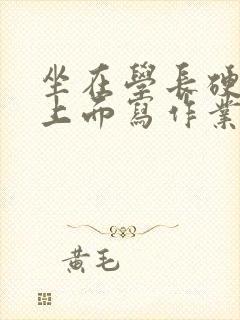 坐在學長硬
上面寫作業
黃毛